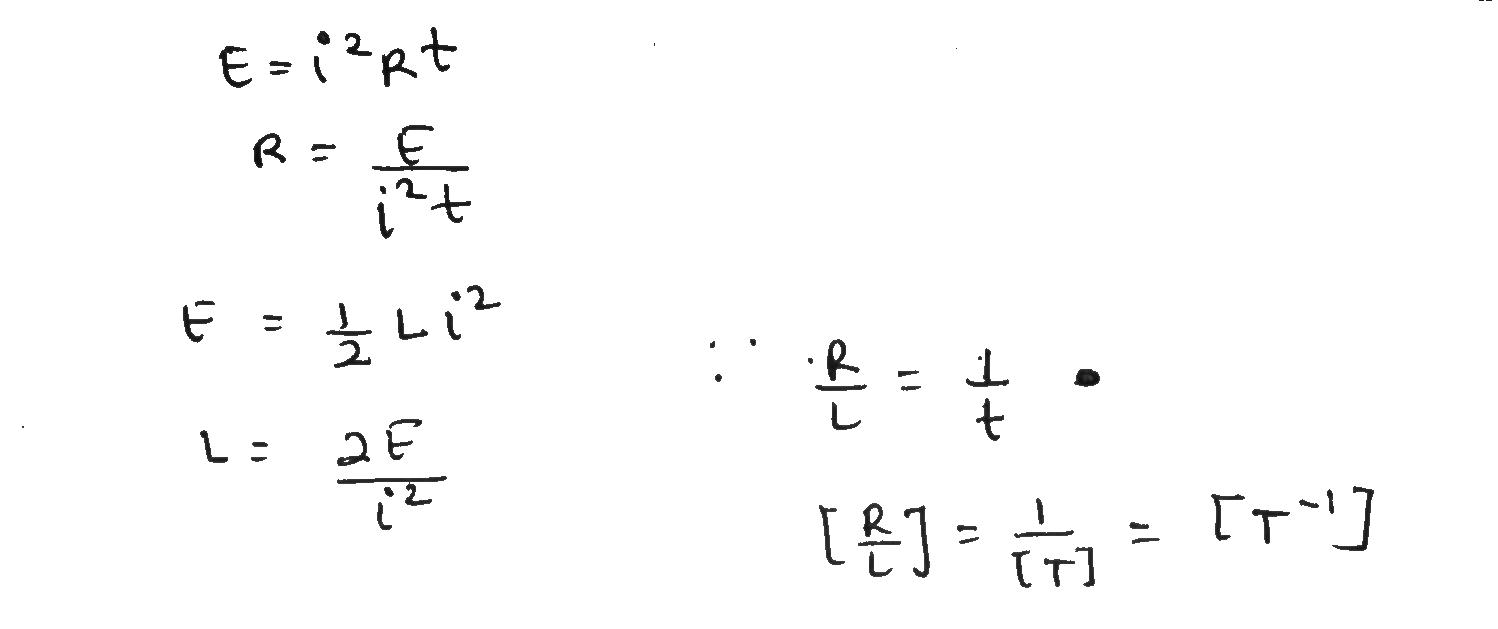 E = i²Rt
R = E/i²t
E = 1/2 Li²
L = 2E/i²
∵ R/L = 1/t
[R/L] = 1/[T] = [T⁻¹]